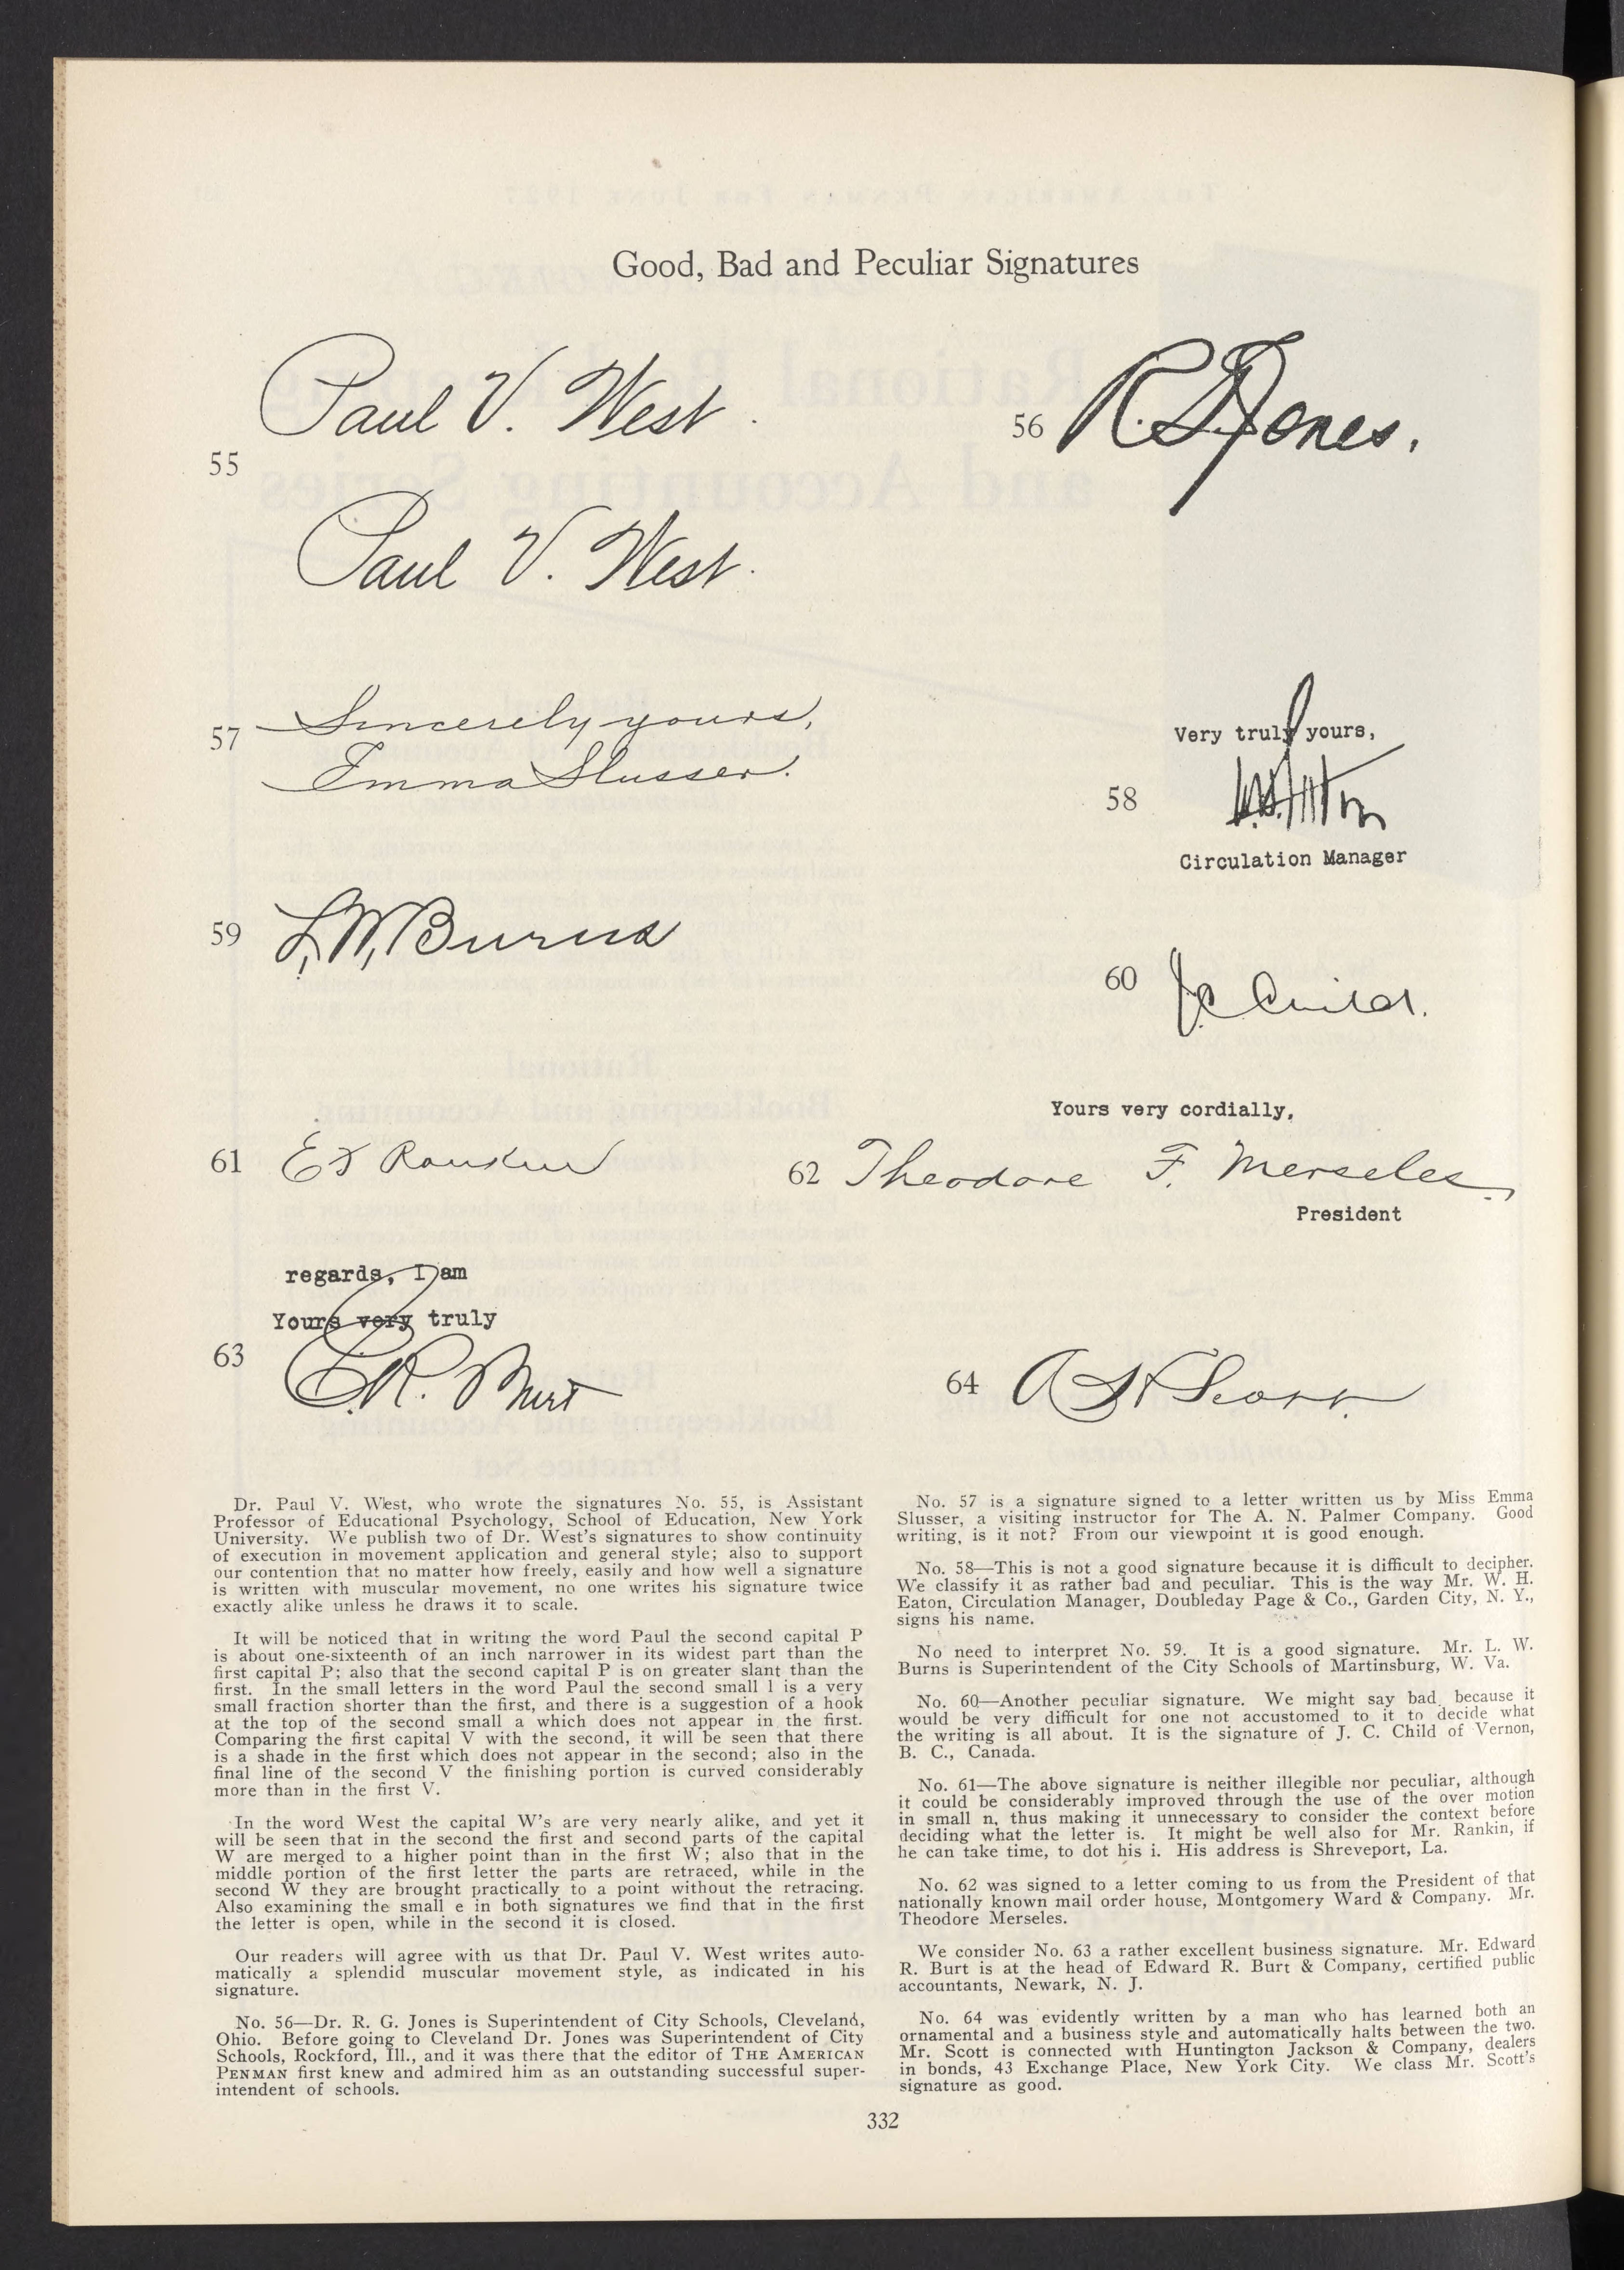 Good, Bad and Peculiar Signatures
Paul V. West.
55
Paul V. West.
56 R. G. Jones.
57 Sincerely yours,
Emma Slusser.
Very truly yours,
58 W. H. Eaton
Circulation Manager
59 L. W. Burns
60 J. C. Child.
61 Ed Rankin
Yours very cordially,
62 Theodore F. Merseles.
President
regards, I am
Yours very truly
63 E. R. Burt
64 Scott.
Dr. Paul V. West, who wrote the signatures No. 55, is Assistant
Professor of Educational Psychology, School of Education, New York
University. We publish two of Dr. West's signatures to show continuity
of execution in movement application and general style; also to support
our contention that no matter how freely, easily and how well a signature
is written with muscular movement, no one writes his signature twice
exactly alike unless he draws it to scale.
It will be noticed that in writing the word Paul the second capital P
is about one-sixteenth of an inch narrower in its widest part than the
first capital P; also that the second capital P is on greater slant than the
first. In the small letters in the word Paul the second small l is a very
small fraction shorter than the first, and there is a suggestion of a hook
at the top of the second small a which does not appear in the first.
Comparing the first capital V with the second, it will be seen that there
is a shade in the first which does not appear in the second; also in the
final line of the second V the finishing portion is curved considerably
more than in the first V.
In the word West the capital W's are very nearly alike, and yet it
will be seen that in the second the first and second parts of the capital
W are merged to a higher point than in the first W; also that in the
middle portion of the first letter the parts are retraced, while in the
second W they are brought practically to a point without the retracing.
Also examining the small e in both signatures we find that in the first
the letter is open, while in the second it is closed.
Our readers will agree with us that Dr. Paul V. West writes auto-
matically a splendid muscular movement style, as indicated in his
signature.
No. 56—Dr. R. G. Jones is Superintendent of City Schools, Cleveland,
Ohio. Before going to Cleveland Dr. Jones was Superintendent of City
Schools, Rockford, Ill., and it was there that the editor of THE AMERICAN
PENMAN first knew and admired him as an outstanding successful super-
intendent of schools.
No. 57 is a signature signed to a letter written us by Miss Emma
Slusser, a visiting instructor for The A. N. Palmer Company. Good
writing, is it not? From our viewpoint it is good enough.
No. 58—This is not a good signature because it is difficult to decipher.
We classify it as rather bad and peculiar. This is the way Mr. W. H.
Eaton, Circulation Manager, Doubleday Page & Co., Garden City, N. Y.,
signs his name.
No need to interpret No. 59. It is a good signature. Mr. L. W.
Burns is Superintendent of the City Schools of Martinsburg, W. Va.
No. 60—Another peculiar signature. We might say bad because it
would be very difficult for one not accustomed to it to decide what
the writing is all about. It is the signature of J. C. Child of Vernon,
B. C., Canada.
No. 61—The above signature is neither illegible nor peculiar, although
it could be considerably improved through the use of the over motion
in small n, thus making it unnecessary to consider the context before
deciding what the letter is. It might be well also for Mr. Rankin, if
he can take time, to dot his i. His address is Shreveport, La.
No. 62 was signed to a letter coming to us from the President of that
nationally known mail order house, Montgomery Ward & Company. Mr.
Theodore Merseles.
We consider No. 63 a rather excellent business signature. Mr. Edward
R. Burt is at the head of Edward R. Burt & Company, certified public
accountants, Newark, N. J.
No. 64 was evidently written by a man who has learned both an
ornamental and a business style and automatically halts between the two.
Mr. Scott is connected with Huntington Jackson & Company, dealers
in bonds, 43 Exchange Place, New York City. We class Mr. Scott's
signature as good.
332